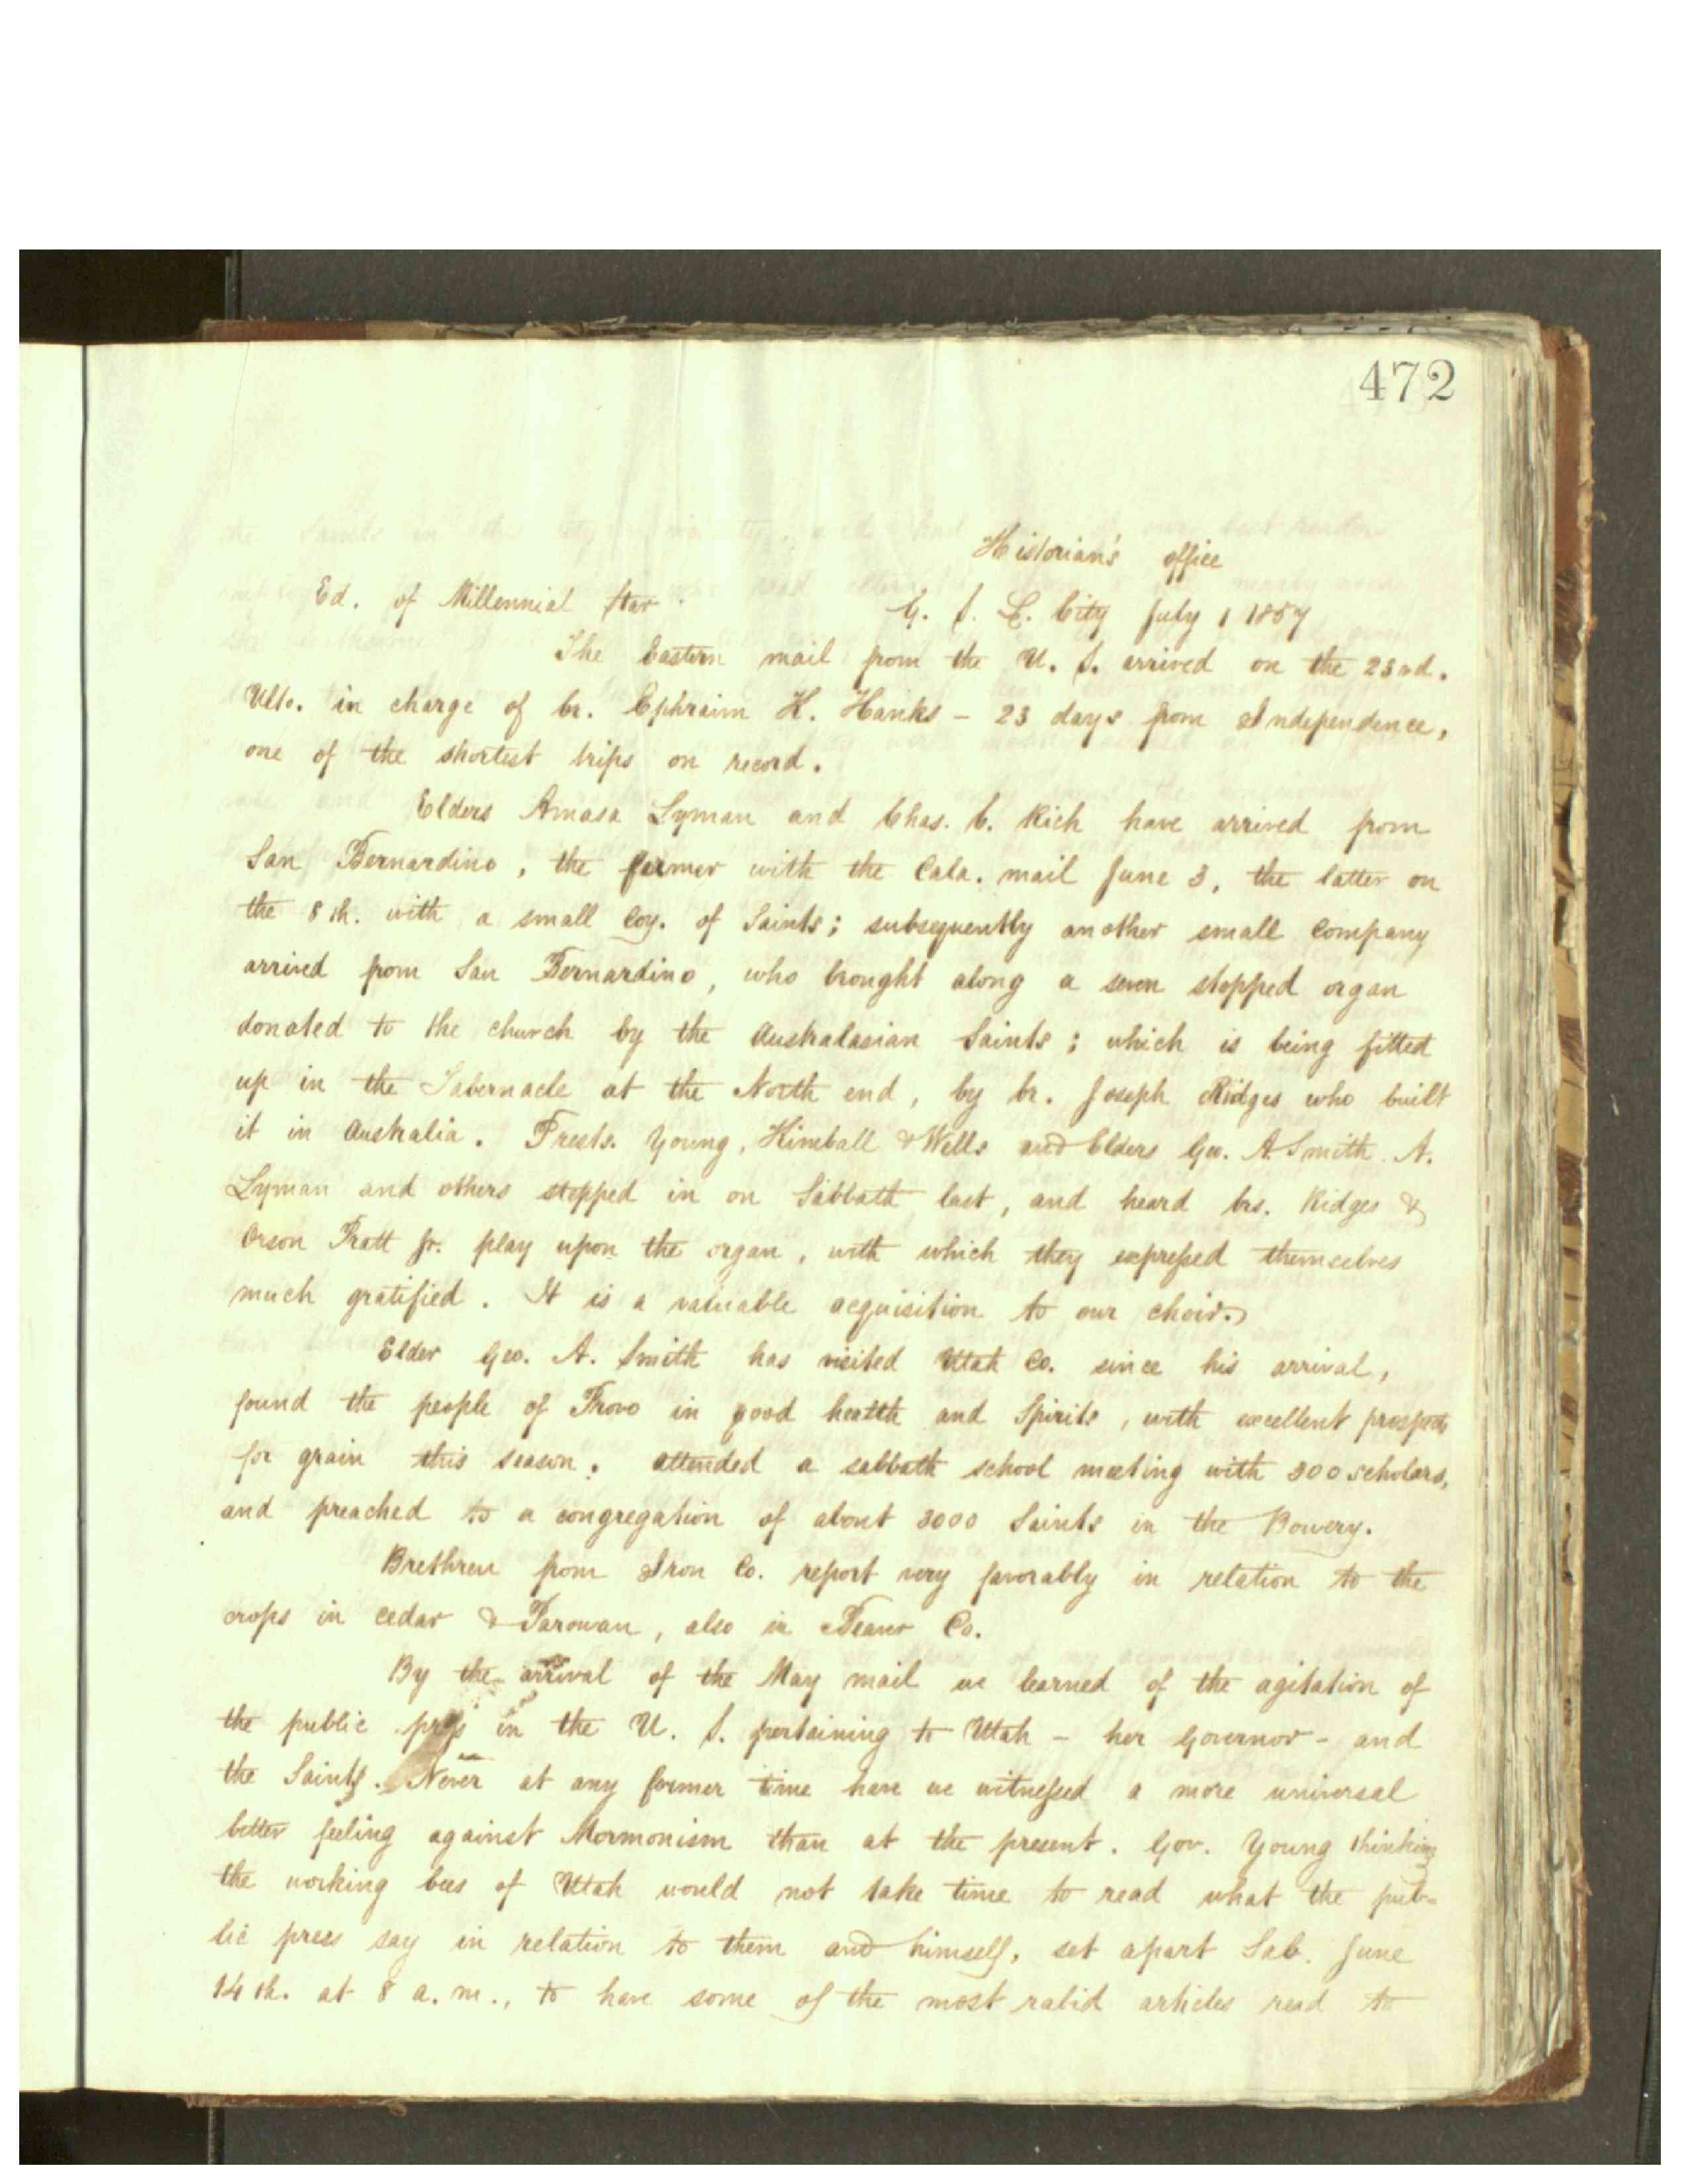 472
Historian's office
Ed. of Millennial Star. G. S. L. City July 1 1857
The Eastern mail from the U. S. arrived on the 23rd.
Ulto. in charge of br. Ephraim K. Hanks - 23 days from Independence,
one of the shortest trips on record.
Elders Amasa Lyman and Chas. C. Rich have arrived from
San Bernardino, the former with the Cala. mail June 3, the latter on
the 8th. with a small Coy. of Saints; subsequently another small Company
arrived from San Bernardino, who brought along a seven stopped organ
donated to the church by the Australasian Saints; which is being fitted
up in the Tabernacle at the North end, by br. Joseph Ridges who built
it in Australia. Prests. Young, Kimball & Wells and Elders Geo. A. Smith. A.
Lyman and others stepped in on Sabbath last, and heard brs. Ridges &
Orson Pratt Jr. play upon the organ, with which they expressed themselves
much gratified. It is a valuable acquisition to our choir.
Elder Geo. A. Smith has visited Utah Co. since his arrival,
found the people of Provo in good health and Spirits, with excellent prospects
for grain this season. attended a sabbath school meeting with 300 scholars,
and preached to a congregation of about 3000 Saints in the Bowery.
Brethren from Iron Co. report very favorably in relation to the
crops in Cedar & Parowan, also in Beaver Co.
By the arrival of the May mail we learned of the agitation of
the public press in the U. S. pertaining to Utah - her Governor - and
the Saints. Never at any former time have we witnessed a more universal
bitter feeling against Mormonism than at the present. Gov. Young thinking
the working bees of Utah would not take time to read what the pub-
lic press say in relation to them and himself, set apart Sab. June
14th. at 8 a. m., to have some of the most rabid articles read to